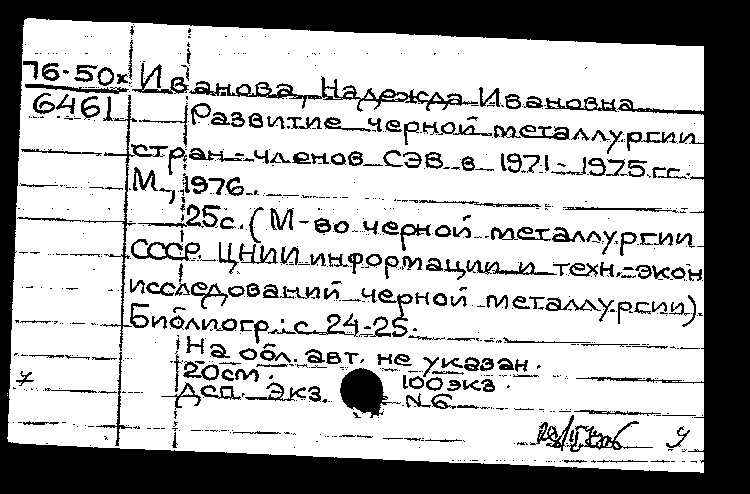 76-50х Иванова, Надежда Ивановна
6461 Развитие черной металлургии
стран-членов СЭВ в 1971-1975гг.
М., 1976.
25с. (М-во черной металлургии
СССР. ЦНИИ информации и техн.-экон
исследований черной металлургии).
Библиогр.: с. 24-25.
На обл. авт. не указан.
20см. 100экз.
Дсп. Экз. N6